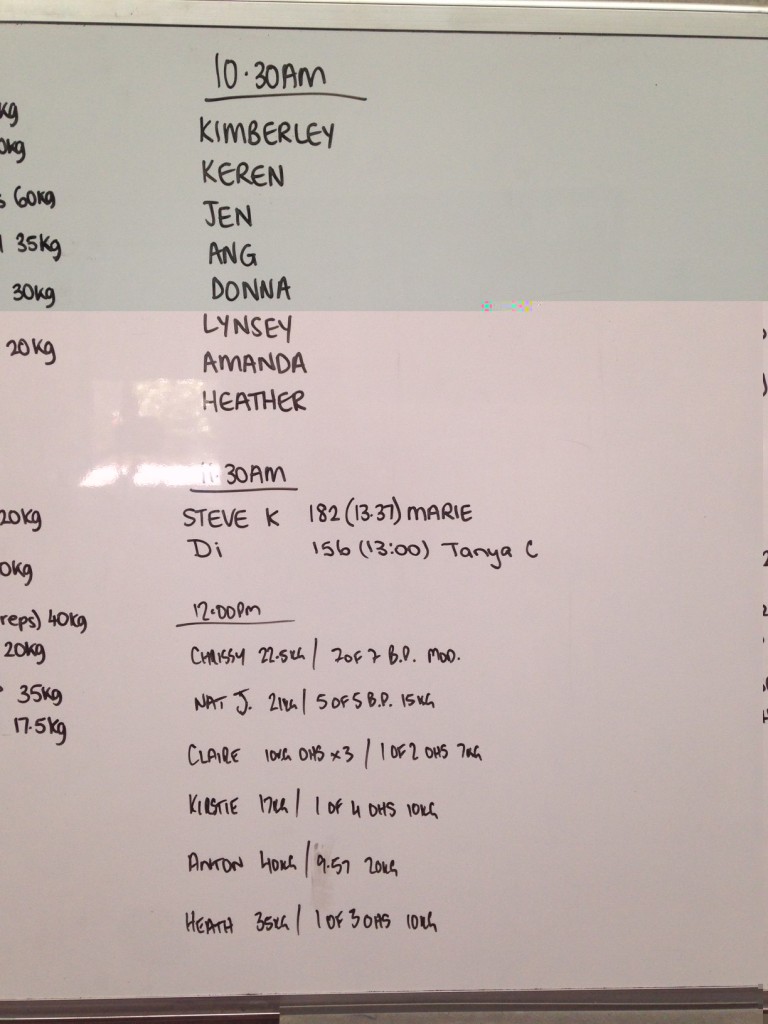 kg
0kg
s 60kg
35kg
30kg
20kg
20kg
0kg
reps) 40kg
20kg
35kg
17.5kg
10.30AM
KIMBERLEY
KEREN
JEN
ANG
DONNA
LYNSEY
AMANDA
HEATHER
11.30AM
STEVE K 182 (13.37) MARIE
Di 156 (13:00) Tanya C
12.00PM
CHRISSY 22.5KG / 7 OF 7 B.P. MOD.
NAT J. 21KG / 5 OF 5 B.P. 15KG
CLAIRE 10KG OHS x3 / 1 OF 2 OHS 7KG
KIRSTIE 17KG / 1 OF 4 OHS 10KG
ANTON 40KG / 9.57 20KG
HEATH 35KG / 1 OF 3 OHS 10KG